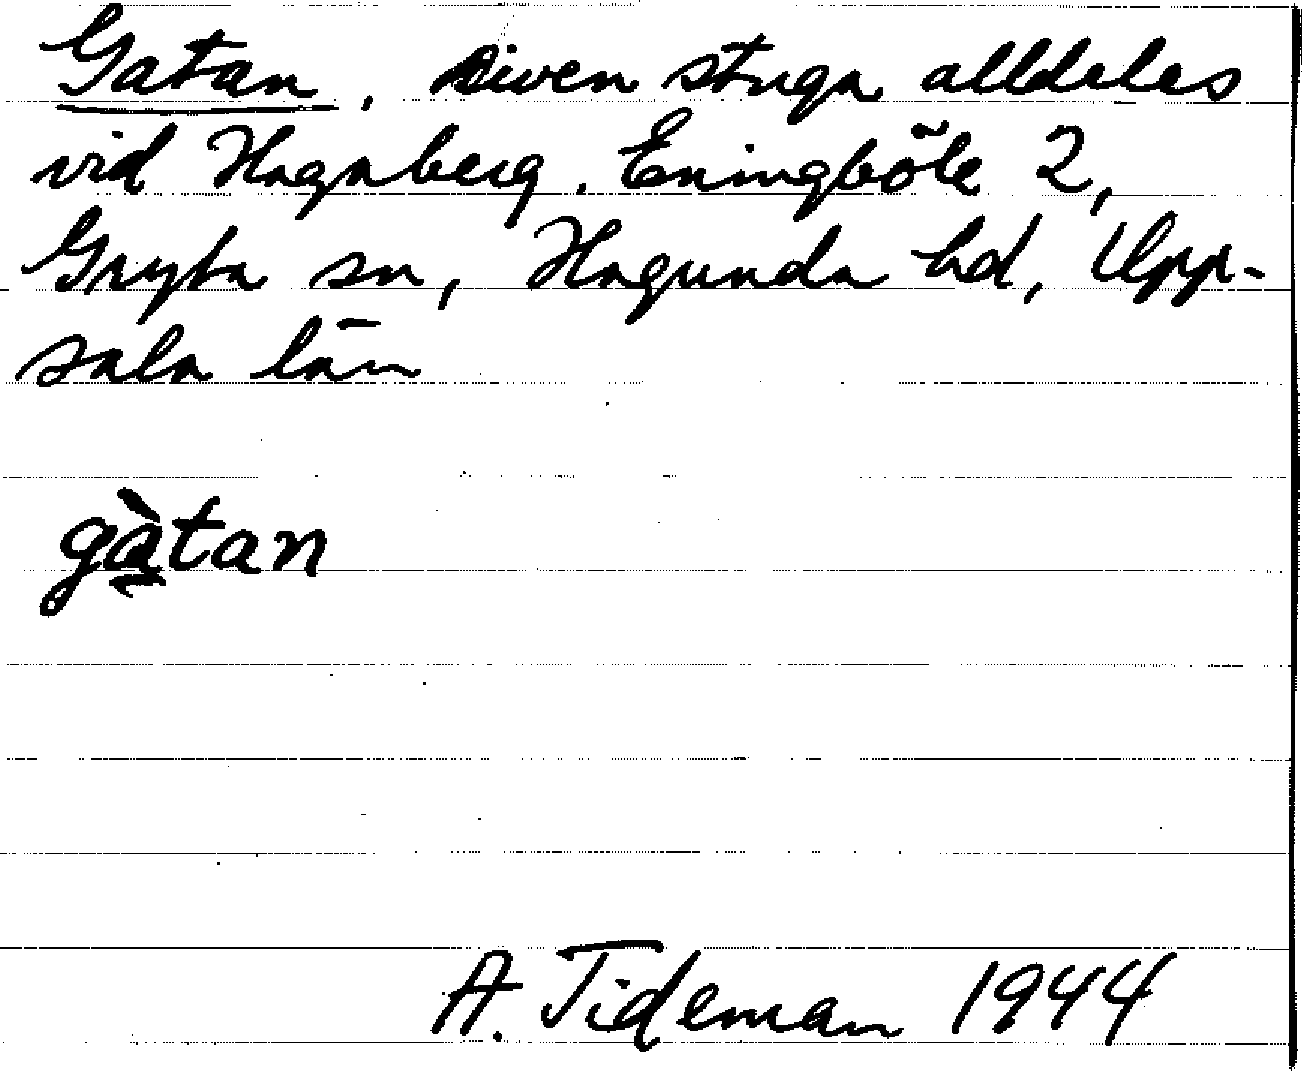 Gatan, riven stuga alldeles
vid Hagaberg. Eningböle 2,
Gryta sn, Hagunda hd, Upp-
sala län
gàtan
A. Tideman 1944